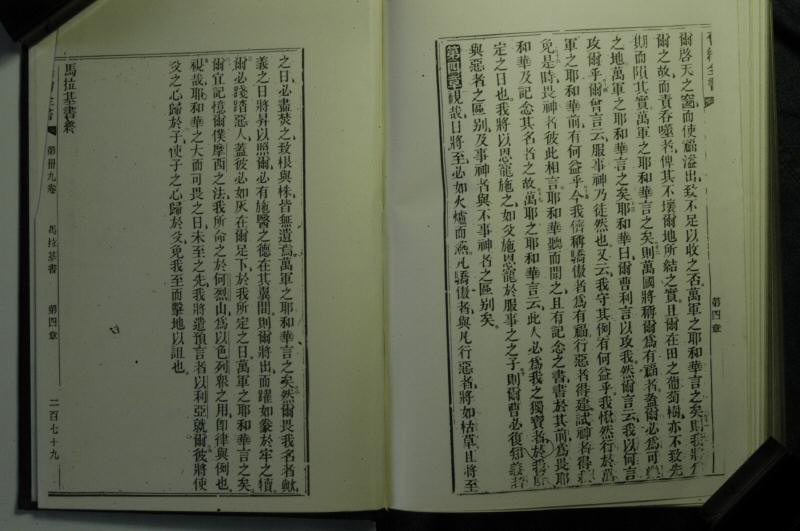 爾啓天之窗而使福溢出致不足以收之否萬軍之耶和華言之矣則我將
爾之故而責吞噬者俾其不壞爾地所結之實且爾在田之葡萄樹亦不致先
期而隕其實萬軍之耶和華言之矣則萬國將稱爾爲有福者蓋爾必爲可
之地萬軍之耶和華言之矣耶和華曰爾曹利言以攻我然爾言云我以何言
攻爾乎爾曾言云服事神乃徒然也又云我守其例有何益乎我愀然行於萬
軍之耶和華前有何益乎今我儕稱驕傲者爲有福行惡者得建試神者得
免是時畏神者彼此相言耶和華聽而聞之且有記念之書書於其前爲畏耶
和華及記念其名者之故萬耶之和華言云此人必爲我之獨寶者於我
定之日也我將以恩寵施之如父施恩寵於服事之之子則爾曹必復知義者
與惡者之區別及事神者與不事神者之區別矣
第四章視哉日將至必如火爐而燕凡驕傲者與凡行惡者將如枯草且將至
第四章
之日必盡焚之致根與株皆無遺焉萬軍之耶和華言之矣然爾畏我名者歟
義之日將昇以照爾必有施醫之德在其翼間則爾將出而躍如豢於牢之犢
爾必踐踏惡人蓋彼必如灰在爾足下於我所定之日萬軍之耶和華言之矣
爾宜記憶爾僕摩西之法我所命之於何烈山爲以色列衆之用卽律與例也
視哉耶和華之大而可畏之日未至之先我將遣預言者以利亞就爾彼將使
父之心歸於子使子之心歸於父免我至而擊地以詛也
馬拉基書終
第卌九卷 馬拉基書 第四章 二百七十九